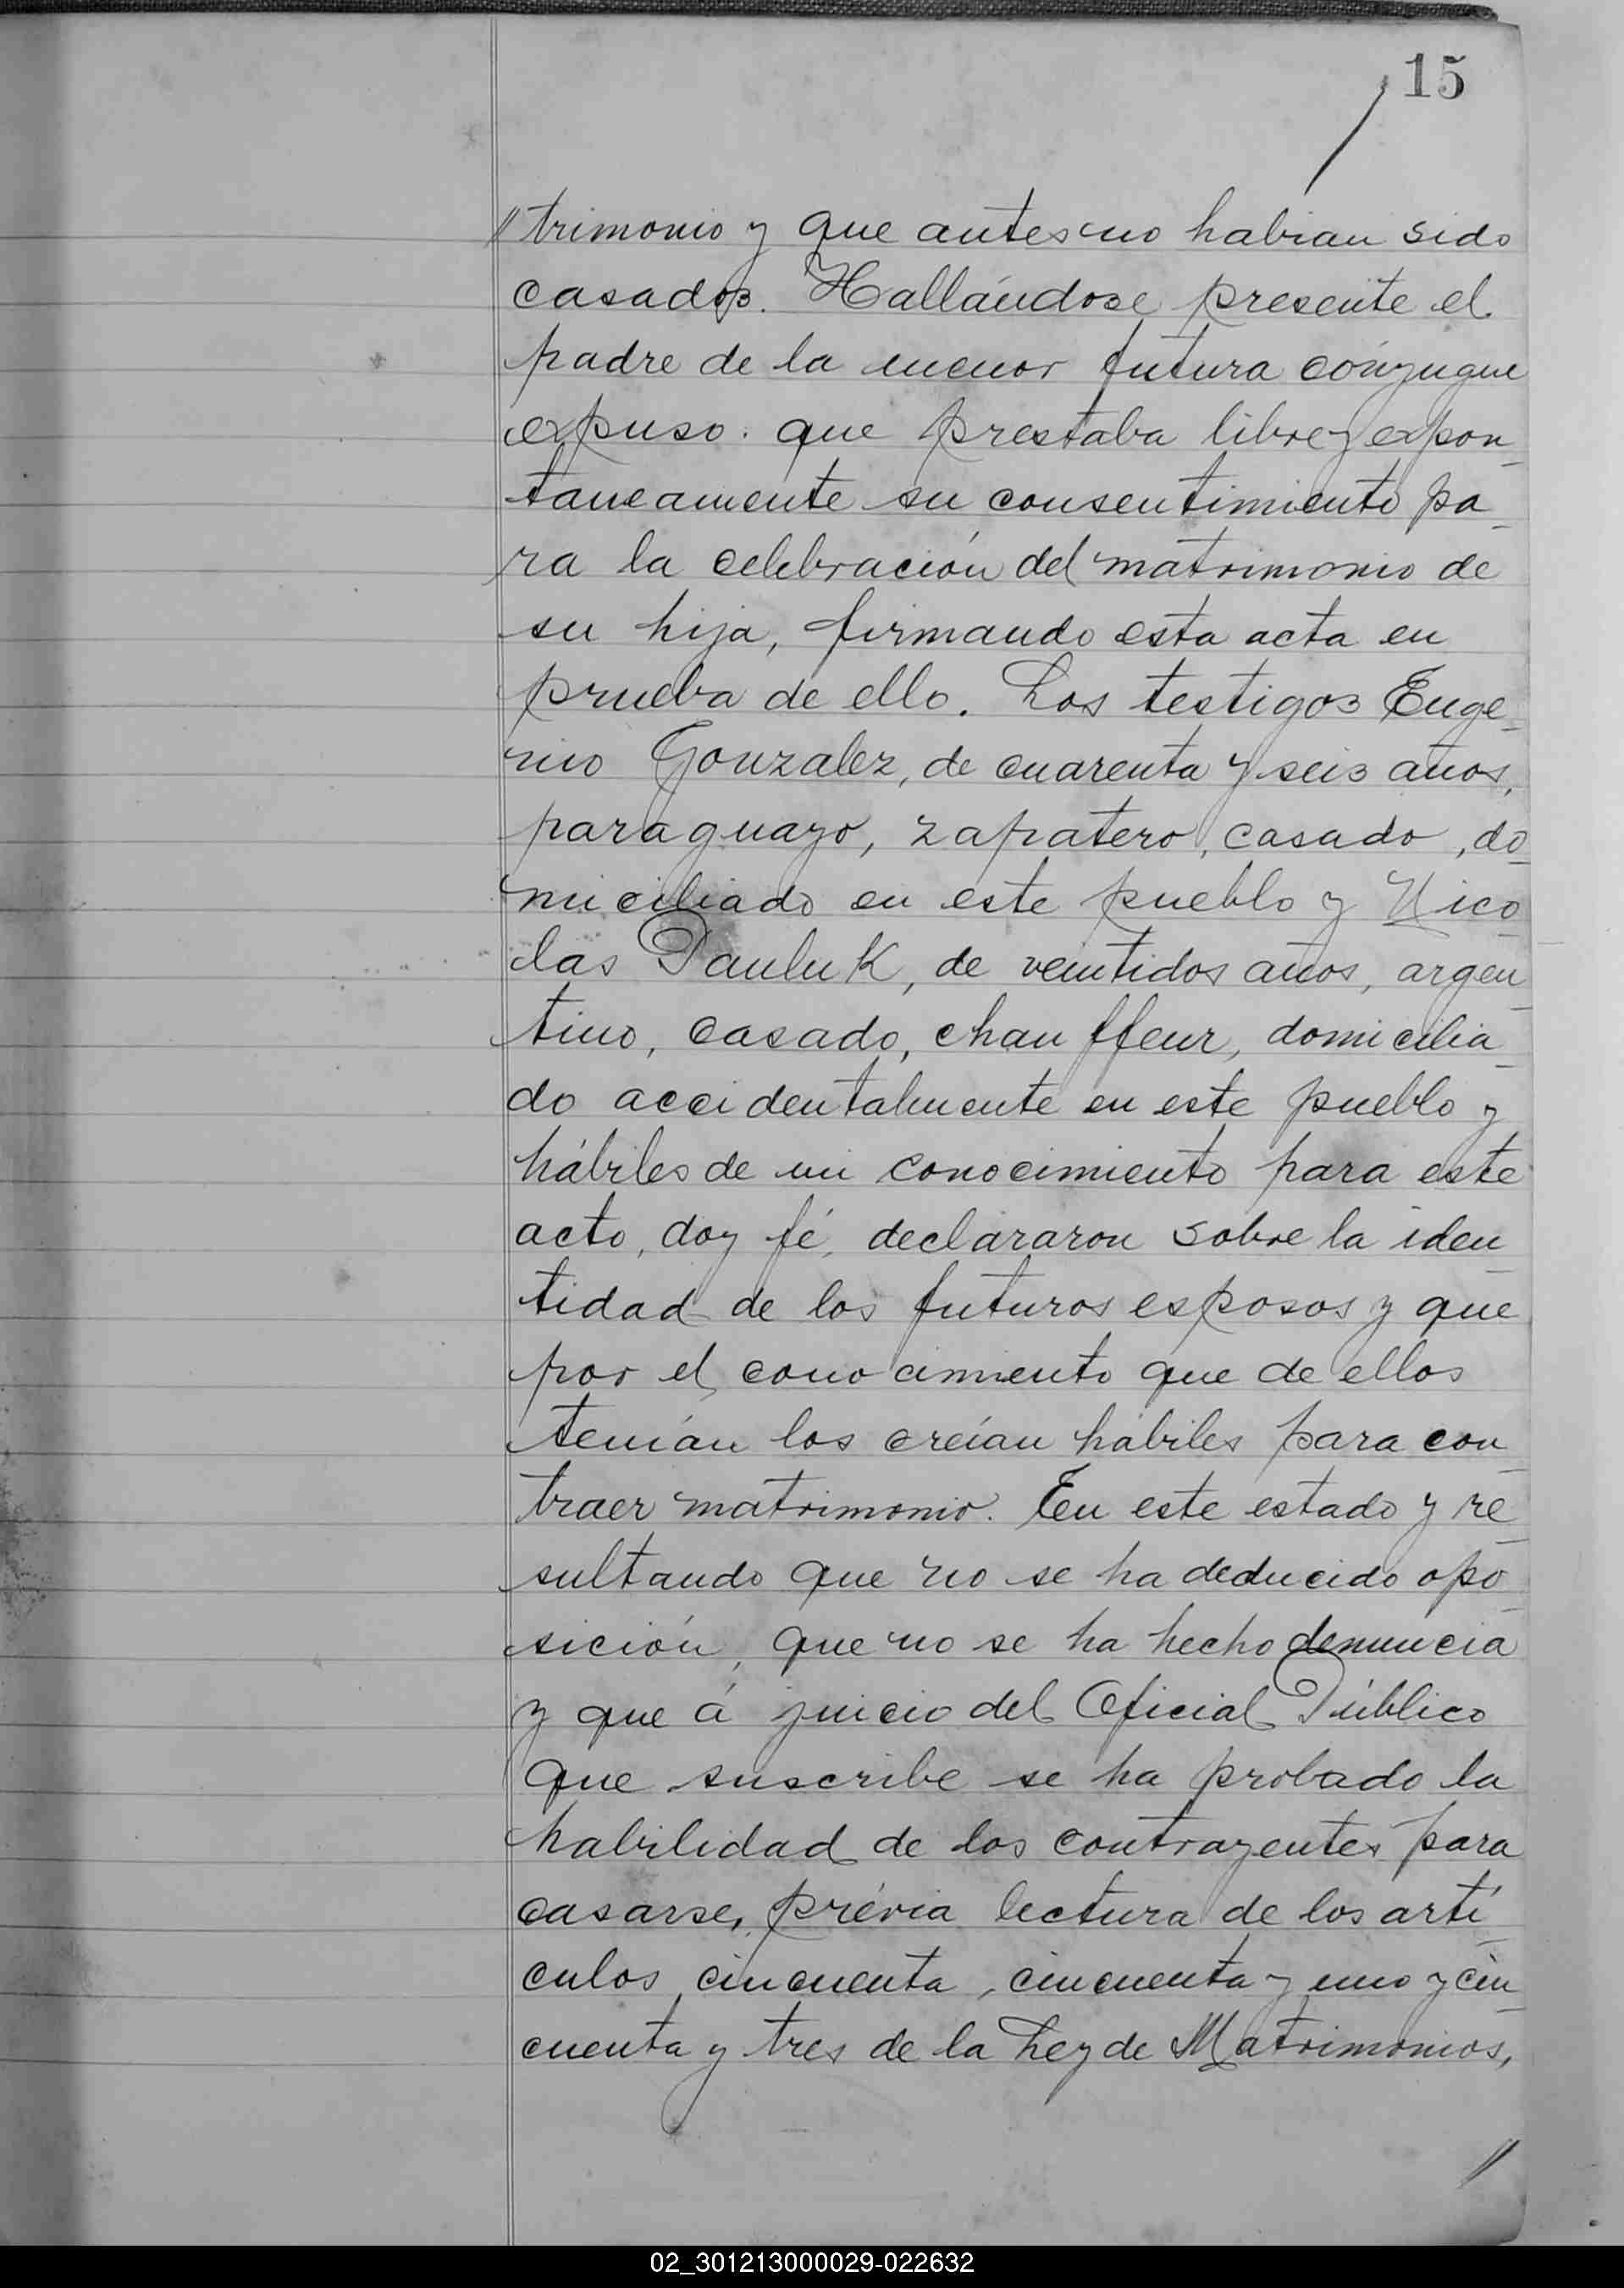 15
// trimonio y que antes no habian sido
casados. Hallándose presente el
padre de la menor futura cónyugue
expuso: que prestaba libre y expon_
taneamente su consentimiento pa_
ra la celebración del matrimonio de
su hija, firmando esta acta en
prueba de ello. Los testigos Euge_
nio Gonzalez, de cuarenta y seis años,
paraguayo, zapatero, casado, do_
miciliado en este pueblo y Nico_
las Pauluk, de veintidos años, argen_
tino, casado, chauffeur, domicilia_
do accidentalmente en este pueblo y
hábiles de mi conocimiento para este
acto, doy fé, declararon sobre la iden_
tidad de los futuros esposos y que
por el conocimiento que de ellos
tenían los creían hábiles para con_
traer matrimonio. En este estado y re_
sultando que no se ha deducido opo_
sición, que no se ha hecho denuncia
y que á juicio del Oficial Público
que suscribe se ha probado la
habilidad de los contrayentes para
casarse, prévia lectura de los artí_
culos cincuenta, cincuenta y uno y cin_
cuenta y tres de la Ley de Matrimonios,
//
02_301213000029-022632